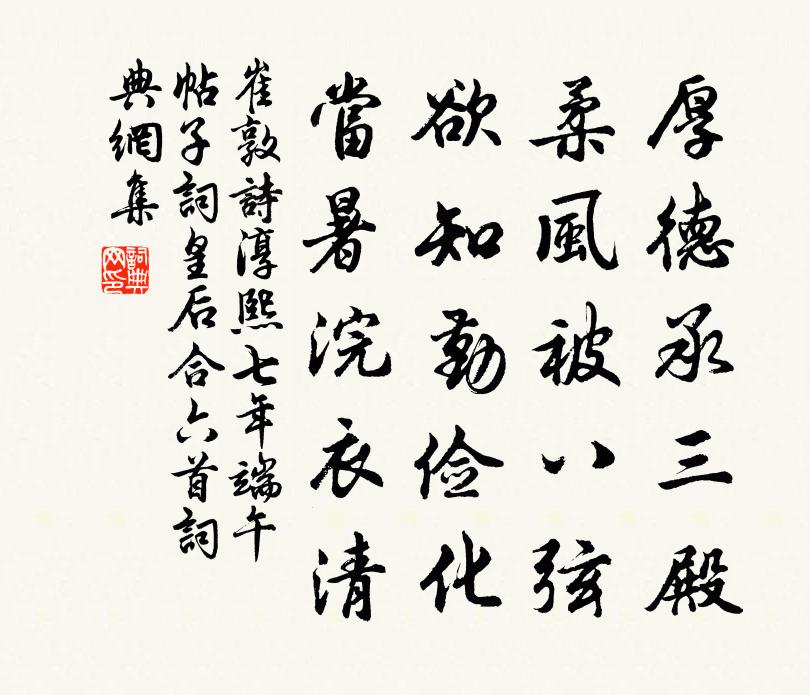 厚德承三殿
柔風被八弦
欲知勤儉化
當暑浣衣清
崔敦詩淳熙七年端午
帖子詞皇后合六首詞
典網集
詞典
网印